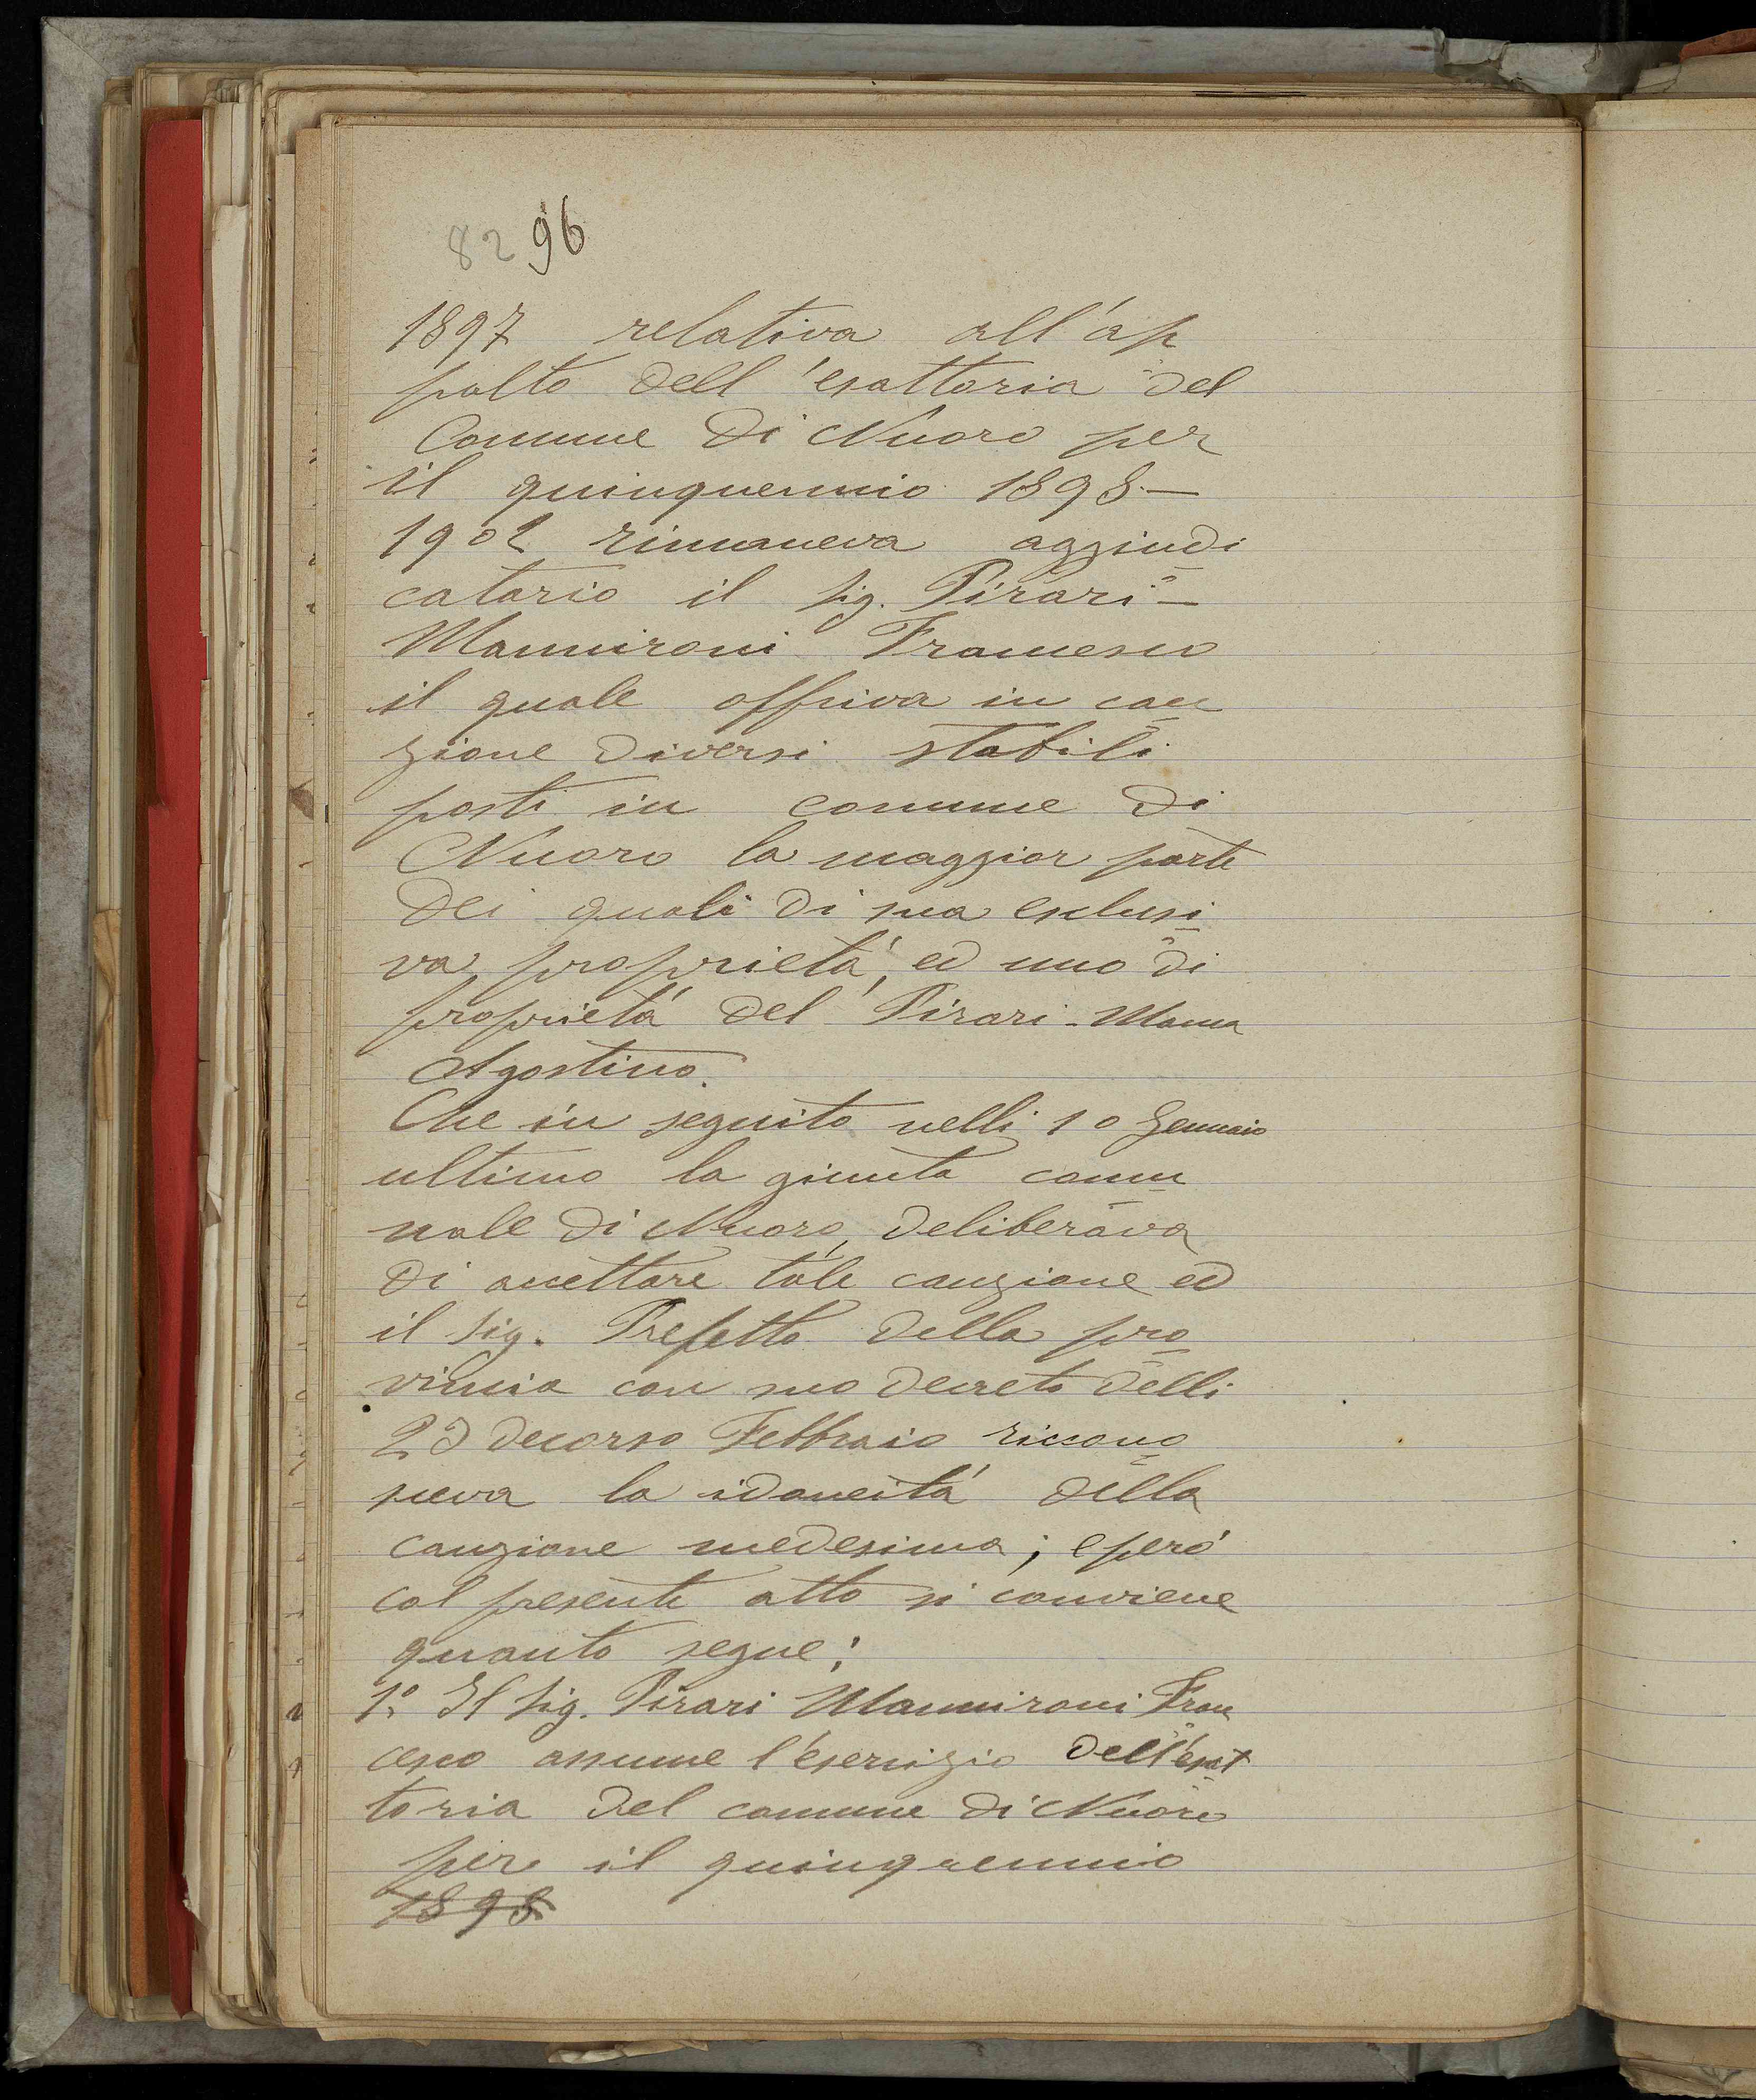 82 96
1897 relativa all'ap
palto dell'esattoria del
Comune di Nuoro per
il quinquennio 1898-
1902 rimaneva aggiudi
catario il Sig. Pirari-
Mannironi Francesco
il quale offriva in cau
zione diversi stabili
posti in comune di
Nuoro la maggior parte
dei quali di sua esclusi
va proprietá, ed uno di
proprietá del Pirari-Manca
Agostino.
Che in seguito nelli 10 Gennaio
ultimo la giunta comu
nale di Nuoro, deliberava
di accettare tale cauzione ed
il Sig. Prefetto della pro
vincia con suo decreto delli
23 decorso Febbraio riccono
sceva la idoneitá della
cauzione medesima; eperó
col presente atto si conviene
quanto segue:
1º Il Sig. Pirari Mannironi Fran
cesco assume l'esercizio dell'esat
toria del comune di Nuoro
per il quinquennio
1898